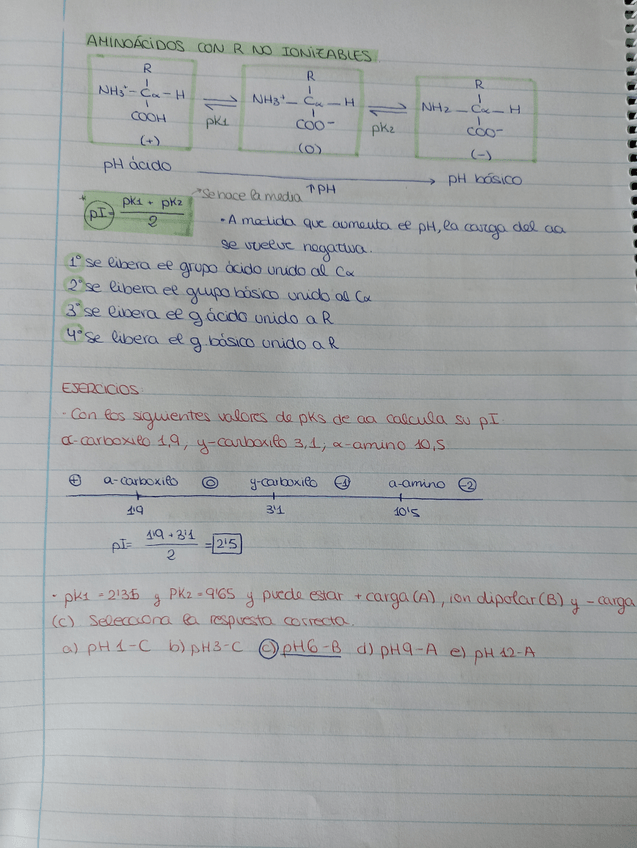 AMINOÁCIDOS CON R NO IONIZABLES
R R R
NH3+ – Cα – H NH3+ – Cα – H NH2 – Cα – H
COOH pK1 COO- pK2 COO-
(+) (0) (-)
pH ácido ↑PH pH básico
* pI = pK1 + pK2 / 2 → Se hace la media
• A medida que aumenta el pH, la carga del aa
se vuelve negativa.
1º se libera el grupo ácido unido al Cα
2º se libera el grupo básico unido al Cα
3º se libera el g ácido unido a R
4º Se libera el g. básico unido a R
EJERCICIOS:
· Con los siguientes valores de pKs de aa calcula su pI
α-carboxilo 1,9, y-carboxilo 3,1, α-amino 10,5
+ a-carboxilo 0 y-carboxilo -1 a-amino -2
1'9 3'1 10'5
pI = 1'9 + 3'1 / 2 = 2'5
· pK1 = 2'35 y PK2 = 9'65 y puede estar + carga (A), ion dipolar (B) y - carga
(c) Selecciona la respuesta correcta.
a) pH 1-C b) pH3-C c) pH6-B d) pH9-A e) pH 12-A